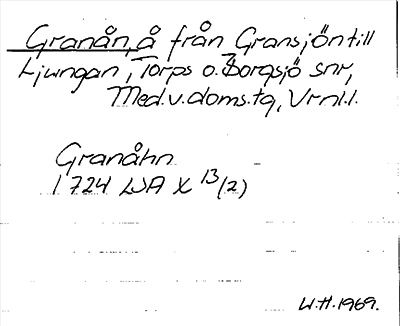 Granån, å från Gransjön till
Ljungan, Torps o. Borgsjö snr,
Med.v.doms.tg, Vrnl.l.
Granåhn
1724 LSA X 13/(2)
W.H. 1969.